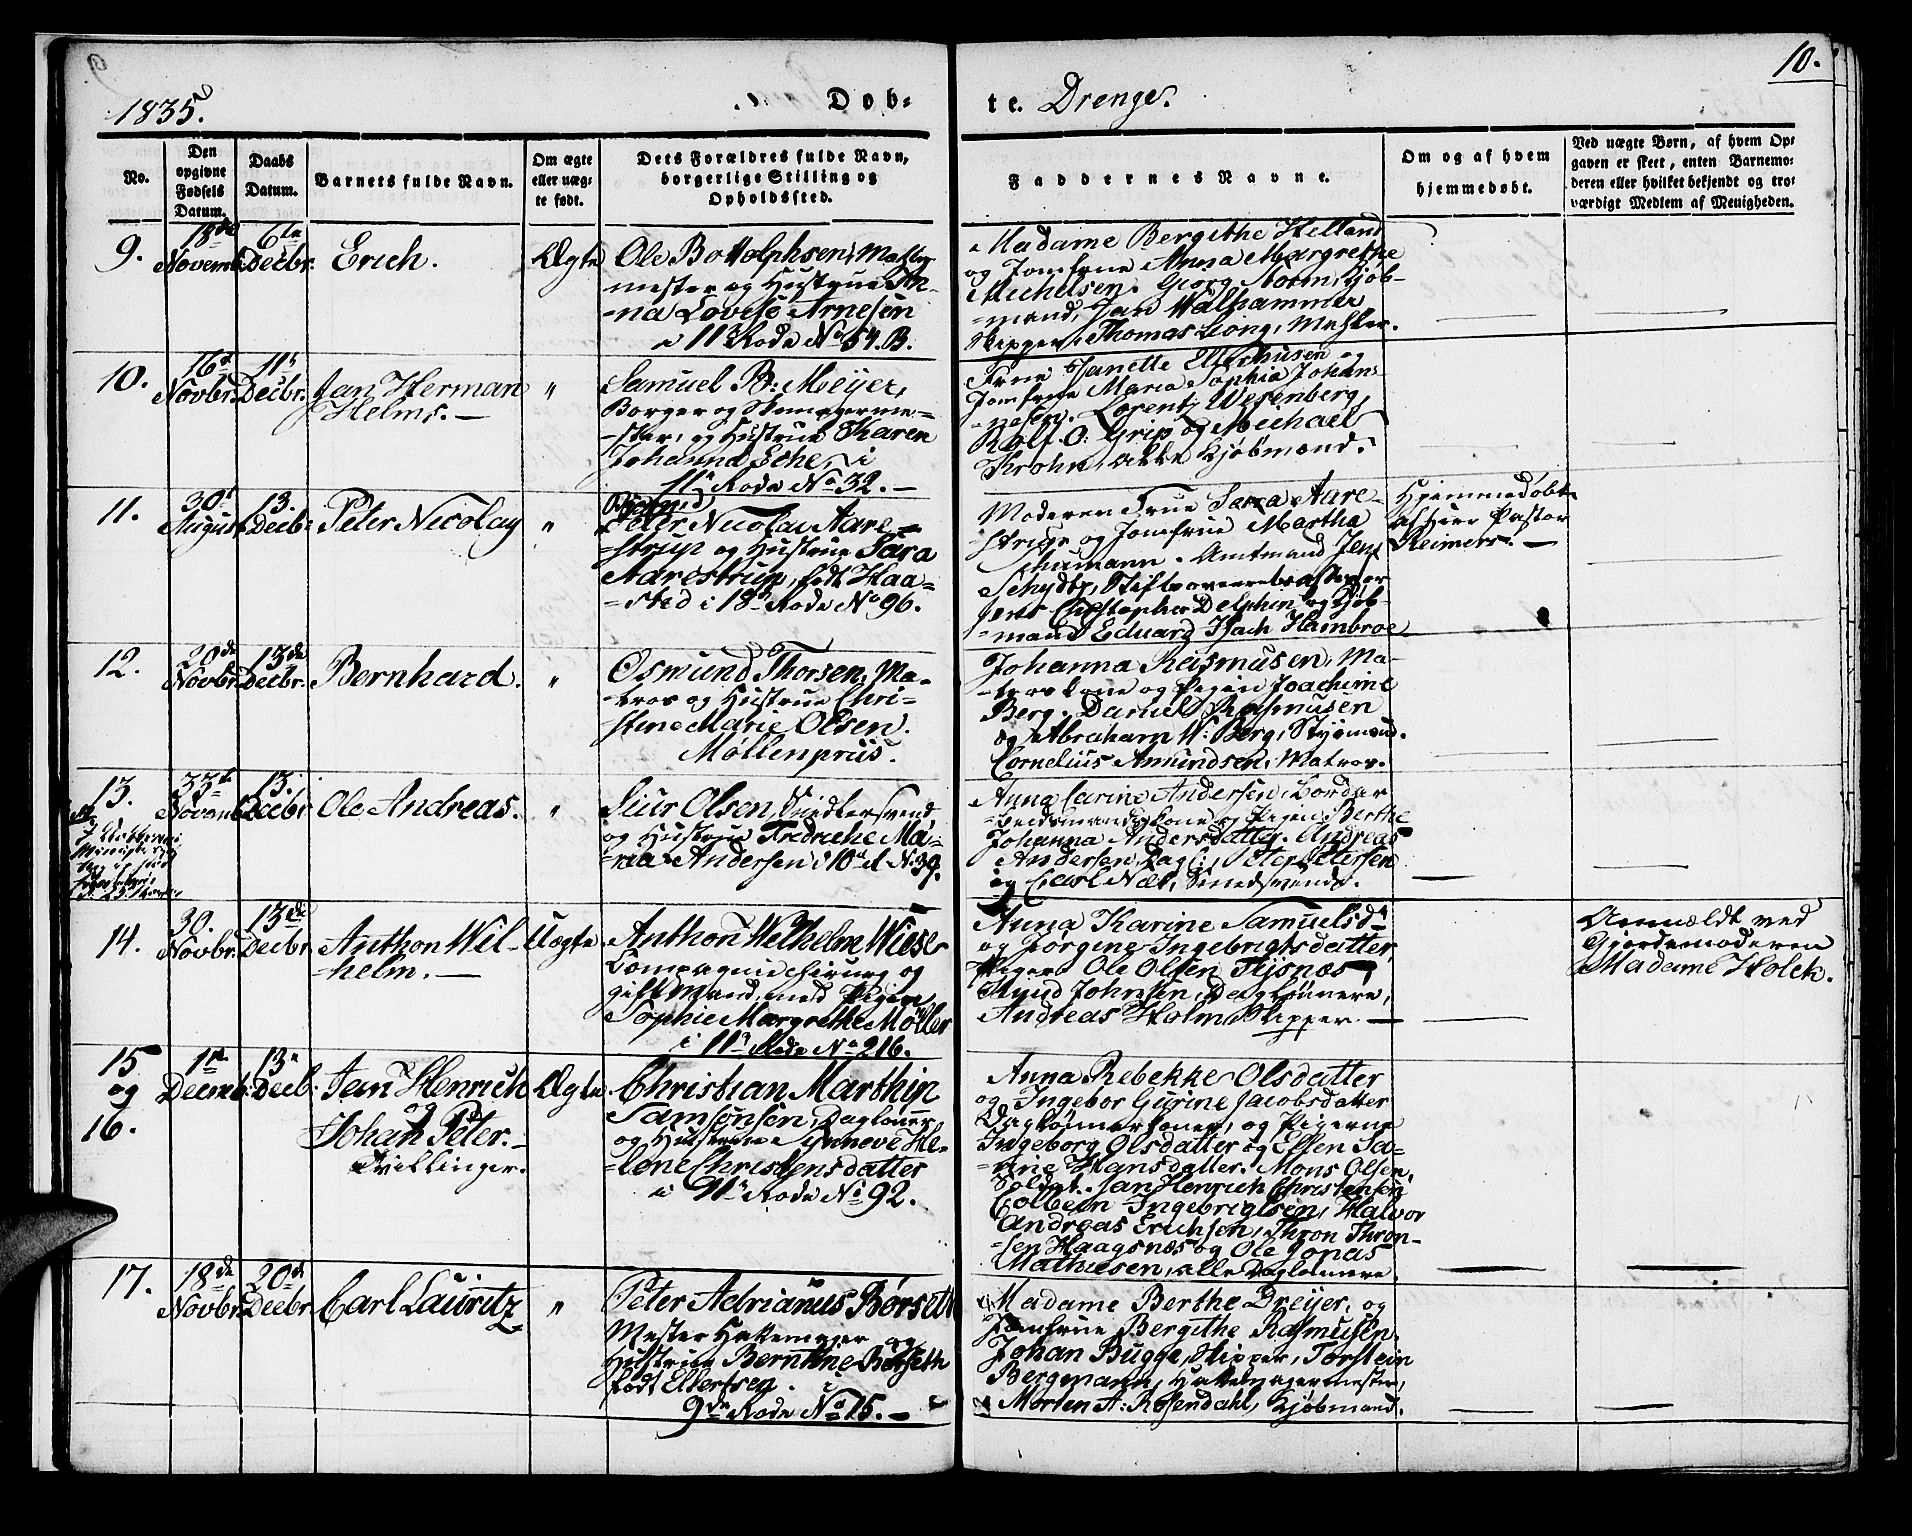 10.
1835.
Døb-
te. Drenge.
No.
Den opgivne Fødsels Datum.
Daabs Datum.
Barnets fulde Navn.
Om ægte eller uægte født.
Dets Forældres fulde Navn, borgerlige Stilling og Opholdssted.
Faddernes Navne.
Om og af hvem hjemmedøbt.
Ved uægte Børn, af hvem Opgaven er skeet, enten Barnemoderen eller hvilket bekjendt og troværdigt Medlem af Menigheden.
9.
18de Novemb.
6te Decbr.
Erich.
Ægte
Ole Bottolphsen, Mæglermester og Hustrue
An-
-na Lovise Arnesen
i 11te Rode No 54. B.
Madame Bergithe Helland
og Jomfrue Anna Margrethe
Michelsen. Georg Norm, Kjøb-
-mand, Jan Walhammer
Skipper, Thomas Long, Mægler.
10.
16de Novbr.
11te Decbr.
Jan Herman
Helms. —
"
Samuel B: Meyer,
Borger og Skomagerme-
-ster, og Hustrue Karen
Johanna Sche, i
11te Rode No 32. —
Frue Janette Ellerhusen og
Jomfrue Maria Sophia Johan-
-nesen. Lorentz Wesenberg,
Rolf O: Grip og Michael
Krohn, alle Kjøbmænd.
11.
30te August
13. Decbr.
Peter Nicolay
"
Peter Nicolai Aare-
-strup og Hustrue Sara
Aarestrup, født Haa-
-sted i 18de Rode No 96.
Moderen Frue Sara Aare-
-strup og Jomfrue Martha
Schumann. Amtmand Jens
Schydtz, Stiftsoverretsassessor
Jens Christopher Delphin og Kjøb-
-mand Eduard Isach Hambroe.
Hjemmedøbt
af Herr Pastor
Reimers. —
12.
20de Novbr.
13de Decbr.
Bernhard.
"
Osmund Thorsen, Ma-
-tros og Hustrue Chri-
-stine Marie Olsen.
Møllenpriis.
Johanna Rasmusen, Ma-
-troskone og Pigen Joachime
Berg. Daniel Rasmusen
og Abraham W: Berg, Styrmænd.
Cornelius Amundsen, Matros.
13.
Novemb.
13. Decbr.
Ole Andreas.
"
Siur Olsen, Snidkersvend
og Hustrue Fredriche Ma-
-ria Andersen i 10de R. No 39.
Anna Carine Andersen,
kone og Pigen Berthe
Johanna Andersdatter. Andreas
Andersen, Dagl:, Peter Petersen
og Carl Næs, Smedsvende.
14.
30. Novbr.
13de Decbr.
Anthon Wil-
-helm. —
Uægte.
Anthon Wilhelm Wiese
Compagniechirurg og
gift Mand, med Pigen
Sophie Margrethe Møller
i 11te Rode No 216.
Anna Karine Samuelsdr
og Jørgine Ingebrigtsdatter,
Piger. Ole Olsen Tejsnæs og
Knud Johnsen, Daglønnere,
Andreas Holm, Skipper —
Anmældt ved
Gjordemoderen
Madame Holck.
15 og 16.
1ste Decemb.
13de Decb.
Jean Henrich
og
Johan Peter. —
Tvillinger.
Ægte.
Christian Marthin
Samsonsen, Daglønner
og Hustrue Gunnove He-
-lene Christensdatter
i 11te Rode No 92.
Anna Rebekke Olsdatter
og Ingebor Gurine Jacobsdatter
Daglønnerkoner, og Pigerne
Ingeborg Olsdatter og Ellen Sa-
-rine Hansdatter. Mons Olsen,
Soldat. Jan Henrich Christensen
Colbein Ingebrigtsen, Halvor
Andreas Erichsen, Thron Thron-
-sen Haagsnæs og Ole Jonas
Mathiesen, alle Daglønnere.
17.
18de Novbr.
20de Decbr.
Carl Lauritz
"
Peter Adrianus Børseth
Mester Hattemager og
Hustrue Berntine Børseth
født Ellertsen. i
9de Rode No 15. —
Madame Berthe Dreyer, og
Jomfrue Bergithe Rasmusen
Johan Bugge, Skipper, Torstein
Bergmann, Hattemagermester,
Morten A: Rosendahl, Kjøbmand.